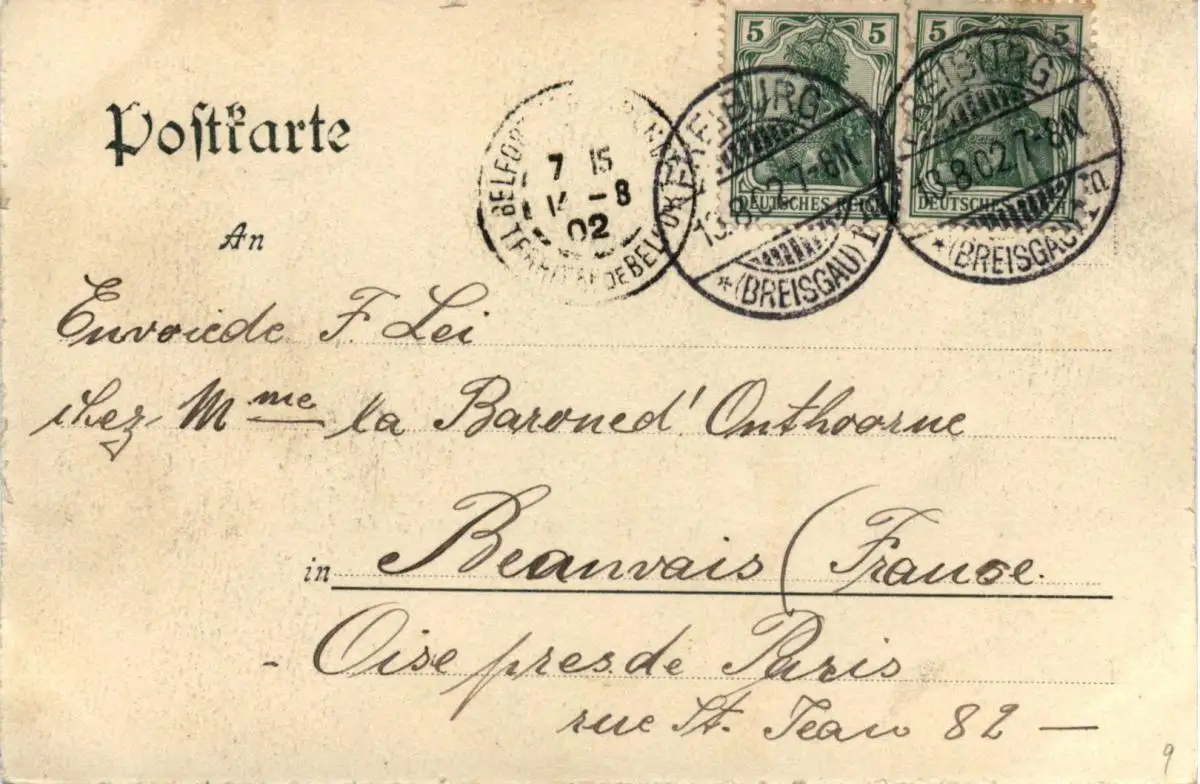 5 5 5 5
DEUTSCHES REICH DEUTSCHES REICH
FREIBURG
13.8.02.7-8N
*(BREISGAU)1
FREIBURG
13.8.02.7-8N
*(BREISGAU)1
BELFORT
7 15
14 - 8
02
TERRIT. DE BELFORT
Postkarte
An
Envoiede F. Lei
chez Mme la Baroned' Onthoorne
in Beauvais (France.
- Oise presde Paris
rue St. Jean 82 —
9